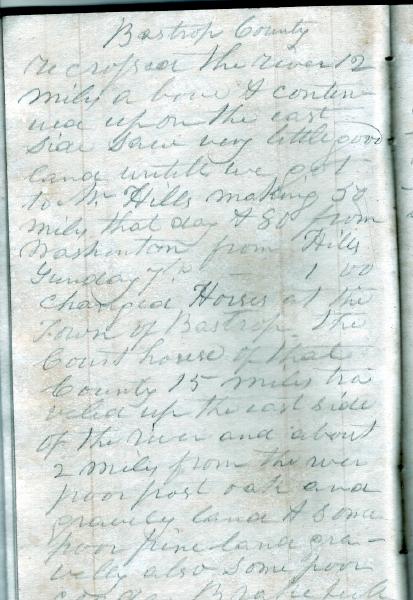 Bastrop County
recrossed the river 12
mily a bove & contin
ued upon the east
side saw very little good
land untill we got
to Mr Hills making 50
mily that day & 80 from
Washenton from Hills
Sunday 7th - 1 00
changed Horses at the
Town of Bastrop The
Court house of that
County 15 miles tra
veled up the east side
of the river and about
2 mily from the river
poor post oak and
gravely land & some
poor pine land gra-
velly also some poor